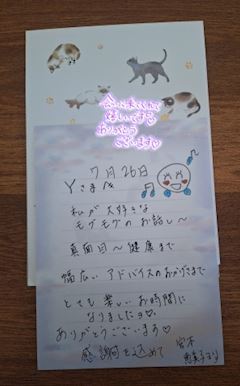 会いに来てくれて
嬉しいです
ありがとう
ございます♡
7月26日
Yさまへ
私が大好きな
モグモグのお話し〜
真面目〜健康まで
幅広いアドバイスのおかげさまで
とても楽しいお時間に
なりましたョ♡
ありがとうございます♡
感謝を込めて